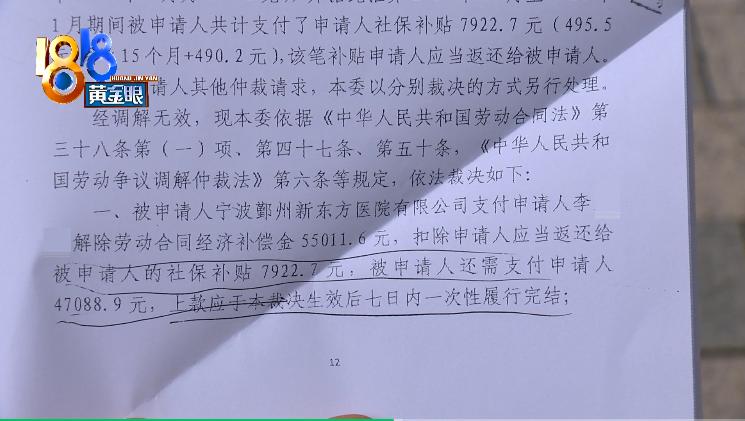 1月期间被申请人共计支付了申请人社保补贴7922.7元(495.5
15个月+490.2元),该笔补贴申请人应当返还给被申请人。
1818
HUANG JIN YAN
黄金眼
请人其他仲裁请求,本委以分别裁决的方式另行处理。
经调解无效,现本委依据《中华人民共和国劳动合同法》第
三十八条第(一)项、第四十七条、第五十条,《中华人民共和
国劳动争议调解仲裁法》第六条等规定,依法裁决如下:
一、被申请人宁波鄞州新东方医院有限公司支付申请人李
解除劳动合同经济补偿金55011.6元,扣除申请人应当返还给
被申请人的社保补贴7922.7元,被申请人还需支付申请人
47088.9元,上款应于本裁决生效后七日内一次性履行完结;
12